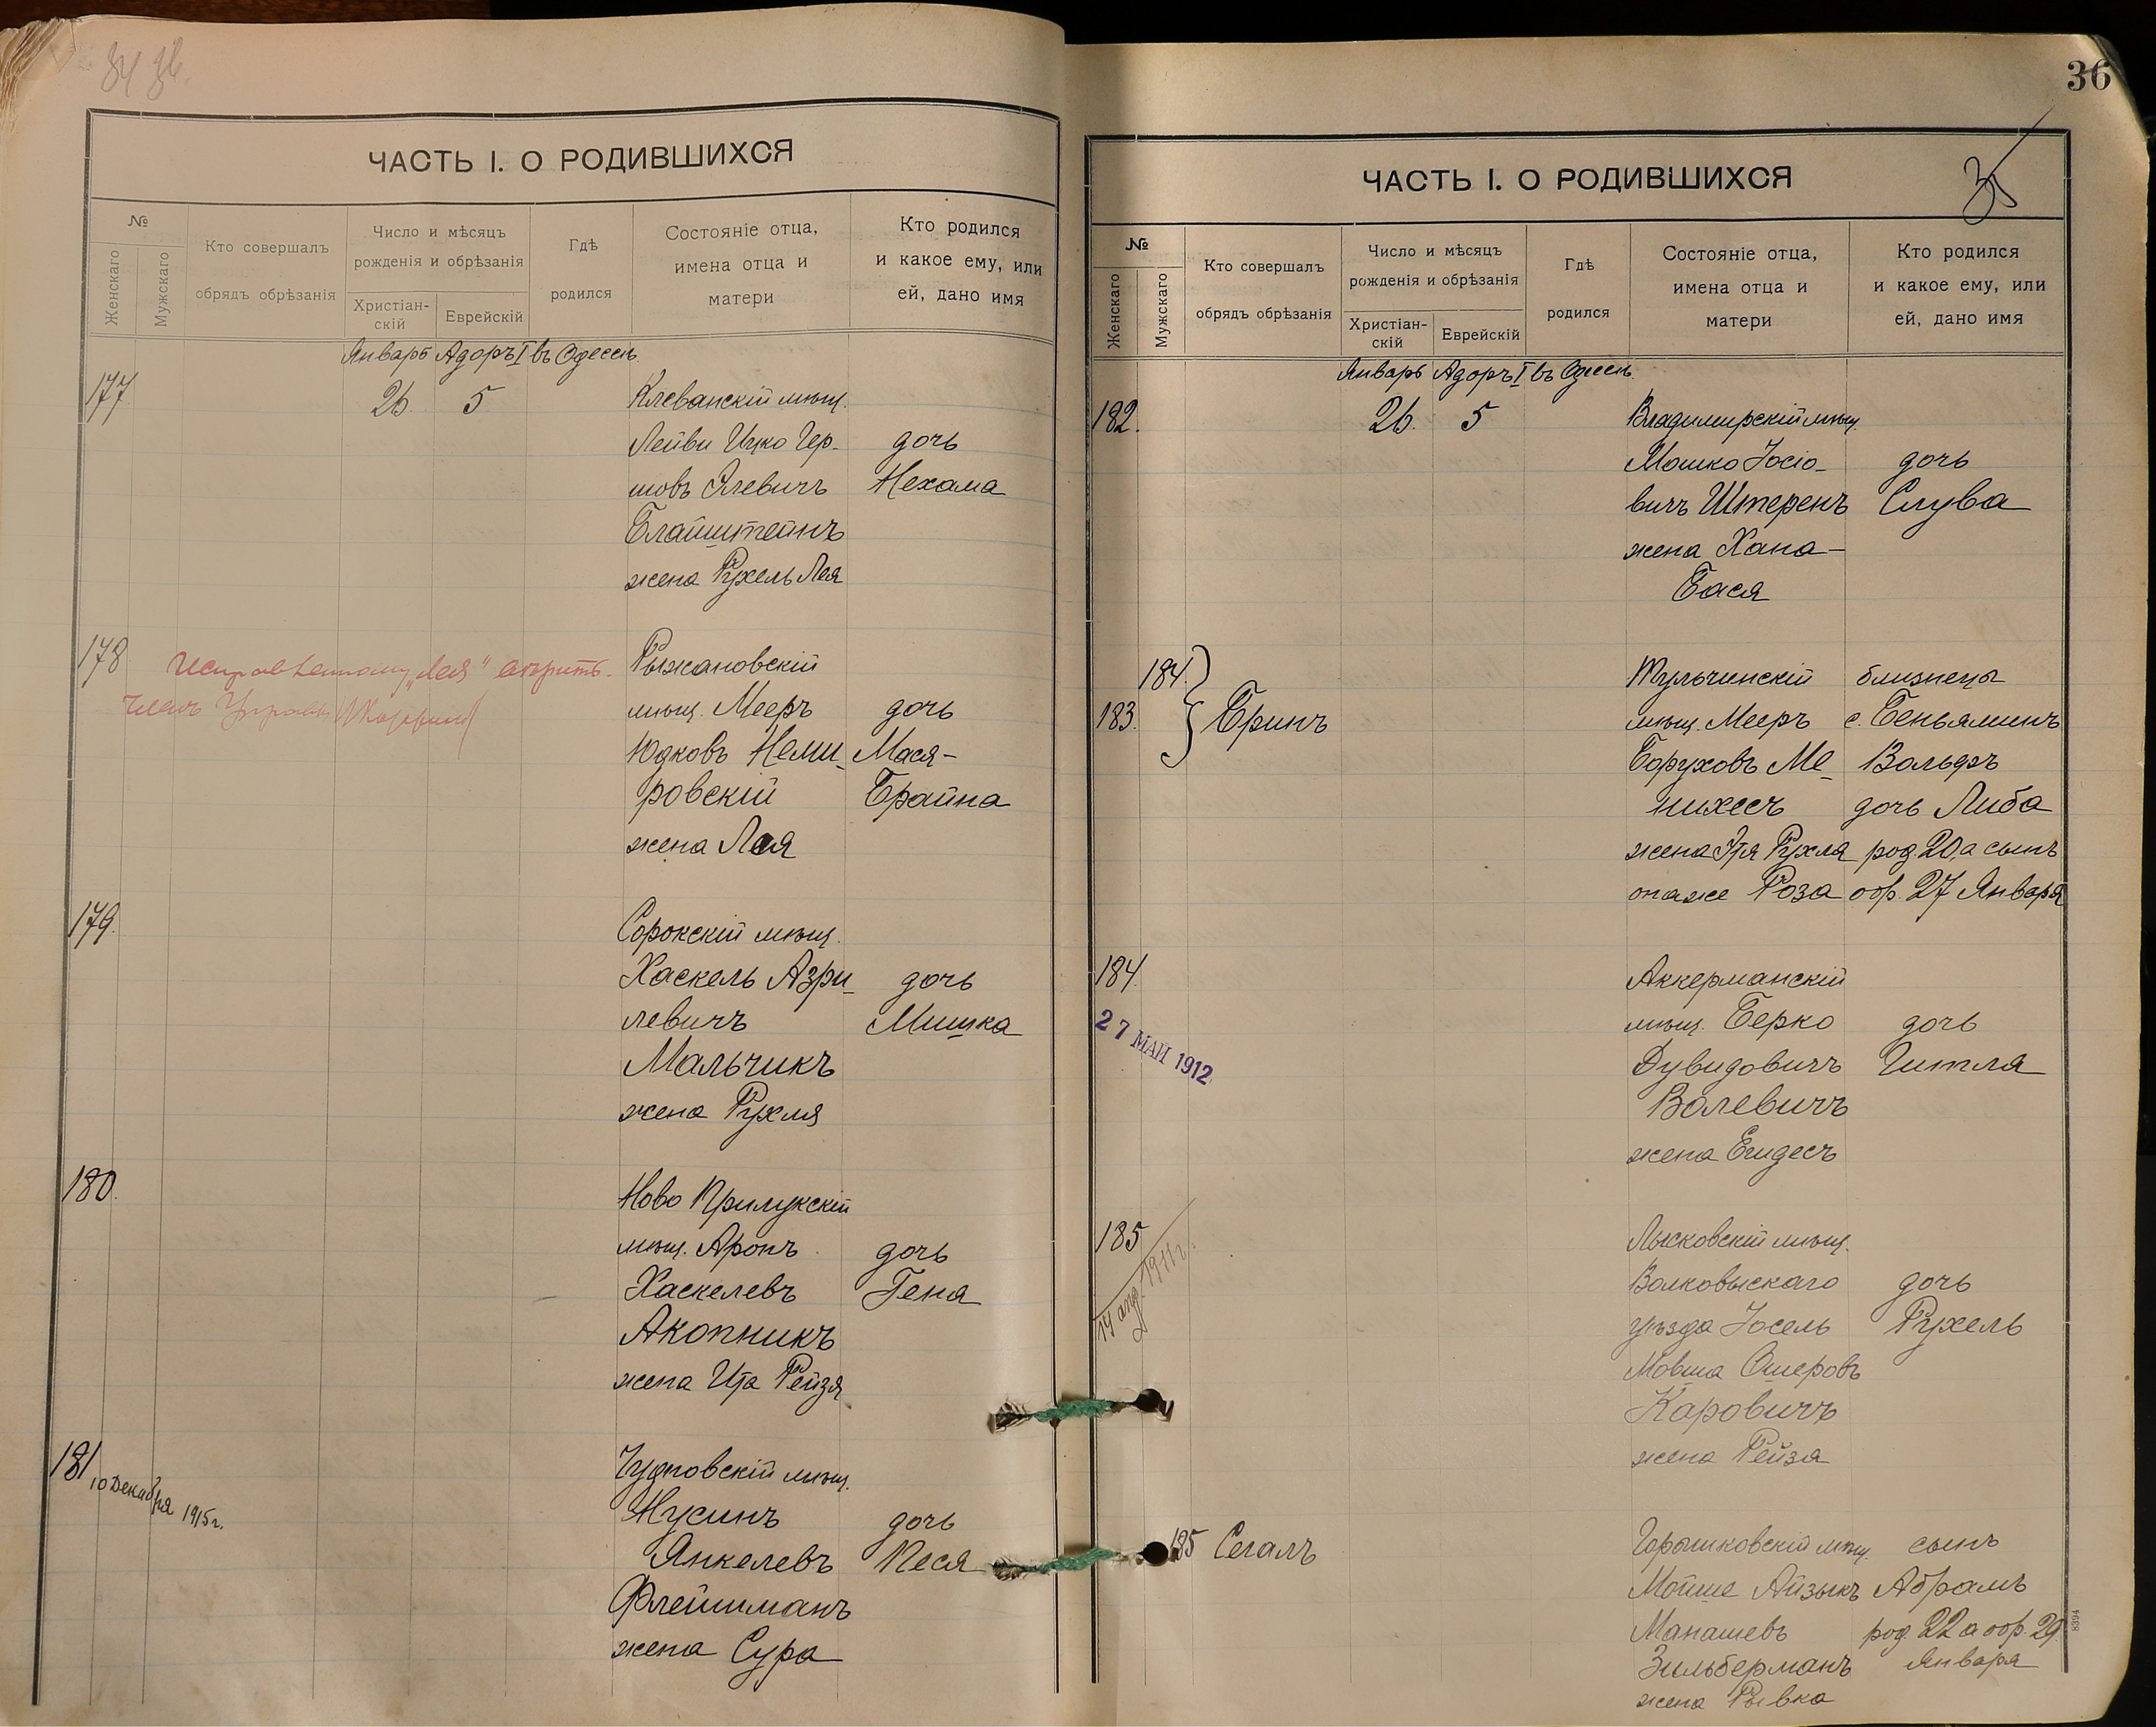 ЧАСТЬ I. О РОДИВШИХСЯ
№
Женскаго
Мужскаго
Кто совершалъ
обрядъ обрѣзанія
Число и мѣсяцъ
рожденія и обрѣзанія
Христіан-
скій
Еврейскій
Гдѣ
родился
Состояніе отца,
имена отца и
матери
Кто родился
и какое ему, или
ей, дано имя
Январь Адоръ I въ Одессѣ
177 26. 5 Клеванскій мѣщ.
Лейви Ицко Гер- дочь
шовъ Элевичъ Нехама
Блайштейнъ
жена Рухель Лея
178 Исправленному „Лея" вѣрить. Рыжановскій
Членъ Управы
мѣщ. Мееръ дочь
Юдковъ Неми- Мася-
ровскій Брайна
жена Лея
179. Сорокскій мѣщ.
Хаскель Азри- дочь
левичъ Мишка
Мальчикъ
жена Рухля
180. Ново Прилукскій
мѣщ. Аронъ дочь
Хаскелевъ Геня
Акопникъ
жена Ита Рейзя
181 Чудновскій мѣщ.
10 Декабря 1915 г.
Нусинъ дочь
Янкелевъ Песя
Флейшманъ
жена Сура
36
35
ЧАСТЬ I. О РОДИВШИХСЯ
№
Женскаго
Мужскаго
Кто совершалъ
обрядъ обрѣзанія
Число и мѣсяцъ
рожденія и обрѣзанія
Христіан-
скій
Еврейскій
Гдѣ
родился
Состояніе отца,
имена отца и
матери
Кто родился
и какое ему, или
ей, дано имя
Январь Адоръ I въ Одессѣ
182. 26. 5 Владимирскій мѣщ.
Мошко Іосіо- дочь
вичъ Штеренъ Слува
жена Хана-
Бася
184. Тульчинскій близнецы
183. Бринъ мѣщ. Мееръ с. Беньяминъ
Боруховъ Ме- Вольфъ
нихесъ дочь Либа
жена Этя Рухля род. 20, а сынъ
онаже Роза обр. 27 Января
184. Аккерманскій
27 МАЙ 1912
мѣщ. Берко дочь
Дувидовичъ Гитля
Волевичъ
жена Егидесъ
185 Лысковскій мѣщ.
14 апр. 1911 г.
Волковыскаго дочь
уѣзда Іосель Рухель
Мовша Ошеровъ
Каровичъ
жена Рейза
185 Сегалъ Горошковскій мѣщ. сынъ
Мойше Айзыкъ Абрамъ
Манашевъ род. 22 а обр. 29
Зильберманъ Января
жена Рывка
8394